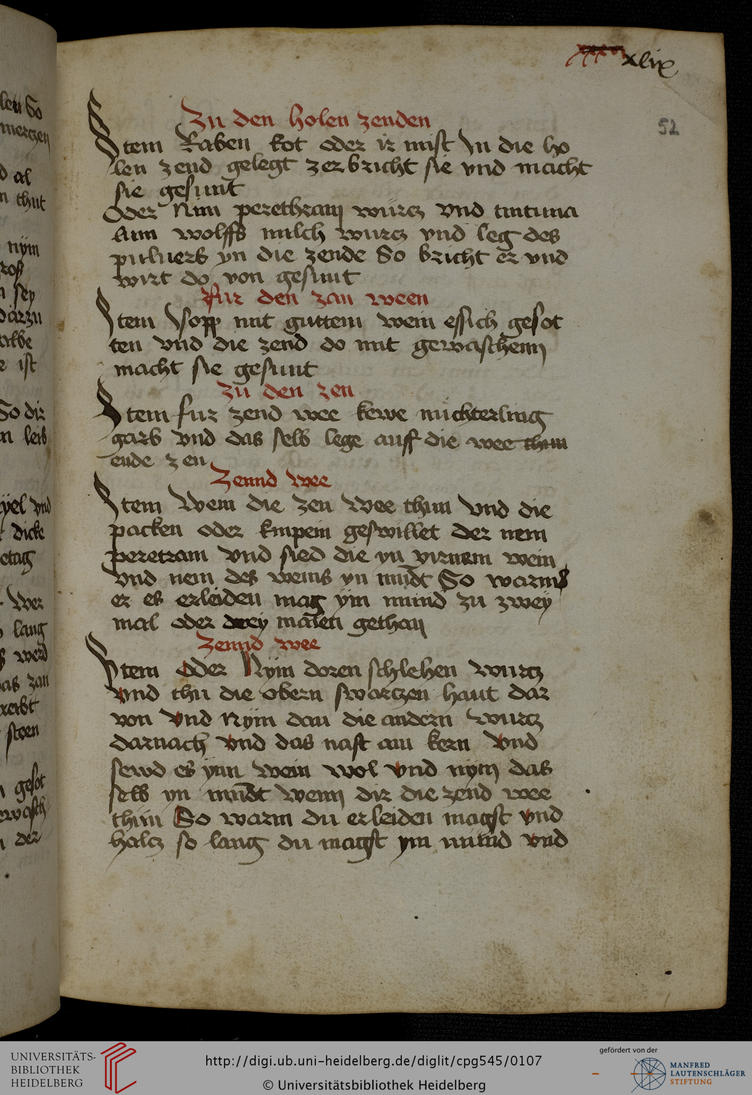 xlix
52
Zu den holen zenden
Item Raben kot oder ir mist In die ho
len zend gelegt zerbricht sie vnd macht
sie gesunt
Oder Nim perethram wurcz vnd
wolffs milch wurcz vnd leg des
puluers yn die zende So bricht er vnd
wirt do von gesunt
Fur den zan ween
Item Ysopp mit guttem wein essich gesot
ten vnd die zend do mit gewaschenn
macht sie gesunt
Zu den zen
Item fur zend wee kewe nuchterling
garb vnd das selb lege auff die wee thun
ende zen
Zennd wee
Item Wem die zen wee thun vnd die
packen oder kinpein geswillet der nem
peretram vnd sied die yn virnem wein
vnd nem des weins yn mudt So warms
er es erleiden mag ym mund zu zwey
mal oder drey malen gethan
Zennd wee
Item Oder Nym doren schlehen wurcz
vnd thu die obern swarczen haut dar
von vnd Nym dan die andern wurcz
darnach vnd das nast am kern vnd
sewd es ynn wein wol vnd nym das
selb yn mudt wenn dir die zend wee
thun So warm du erleiden magst vnd
halcz so lang du magst ym mund vnd
UNIVERSITÄTS-
BIBLIOTHEK
HEIDELBERG
http://digi.ub.uni-heidelberg.de/diglit/cpg545/0107
© Universitätsbibliothek Heidelberg
gefördert von der
MANFRED
LAUTENSCHLÄGER
STIFTUNG